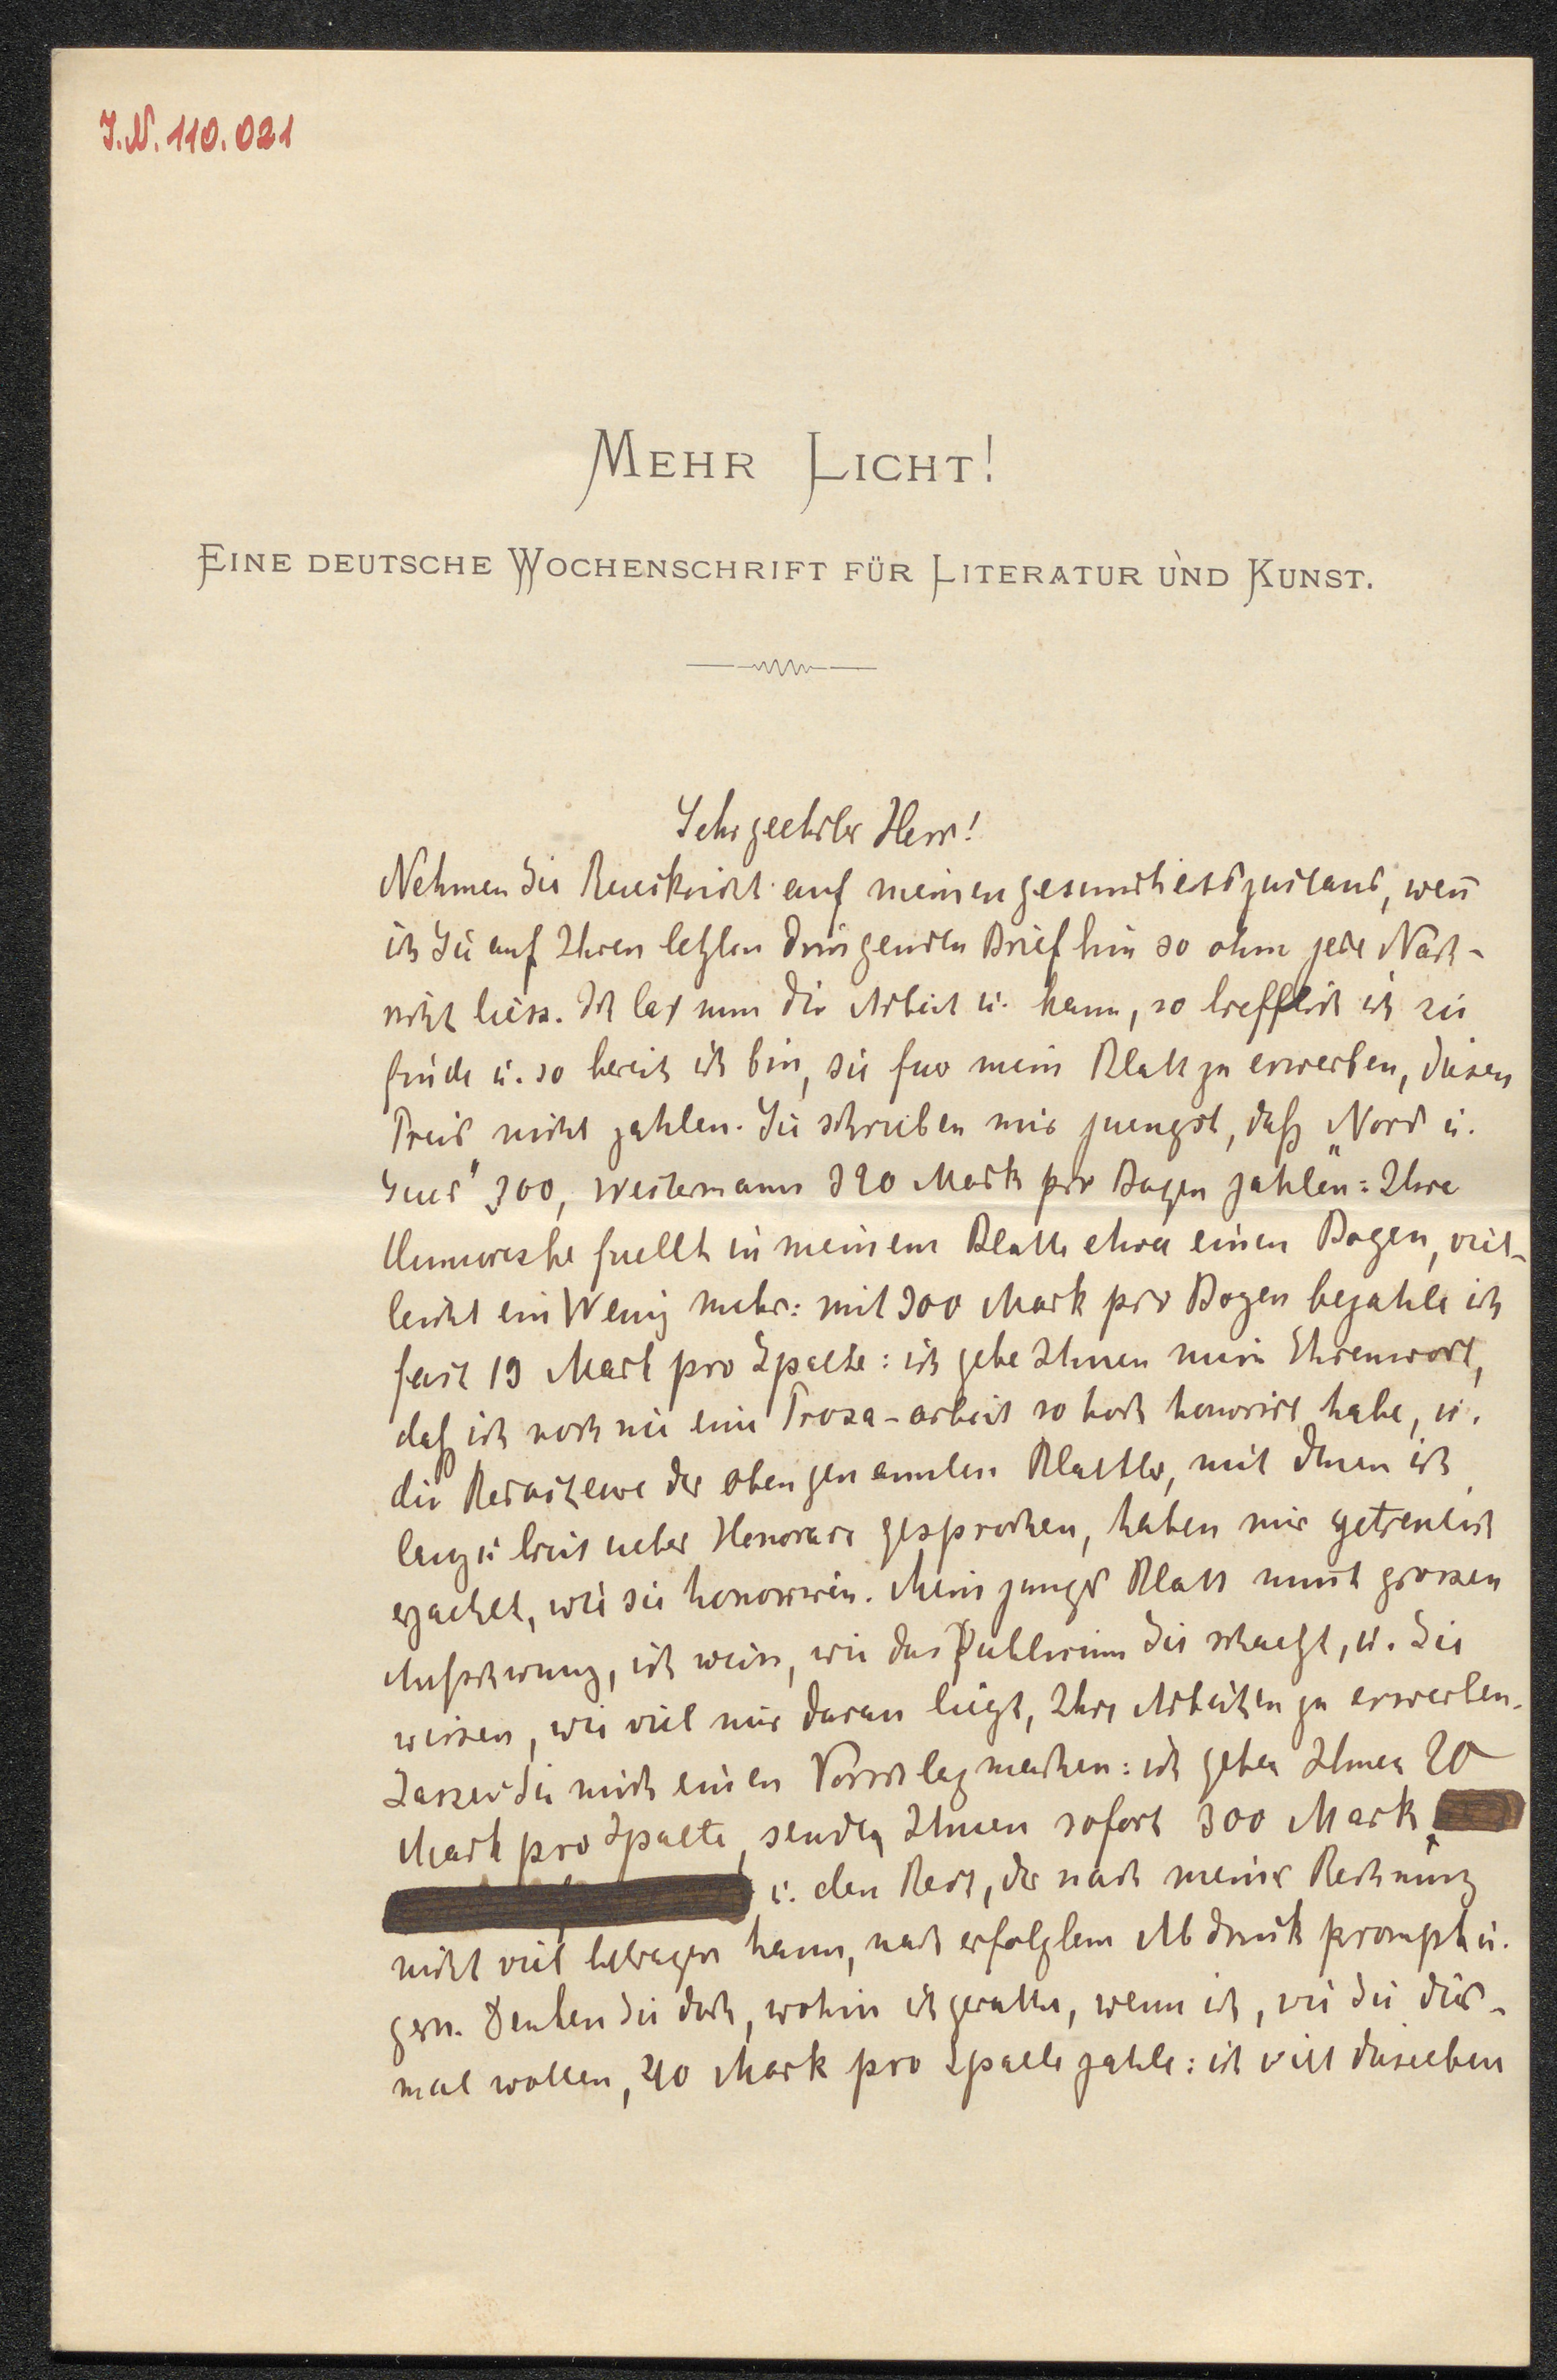 J.N. 110.021
MEHR LICHT!
EINE DEUTSCHE WOCHENSCHRIFT FÜR LITERATUR UND KUNST.
Sehr geehrter Herr!
Nehmen Sie Ruecksicht auf meinen gesundheitszustand, weñ
ich Sie auf Ihren letzten dringenden Brief hin so ohne jede Nach-
richt liess. Ich las nun die Arbeit u. kann, so trefflich ich sie
finde u. so bereit ich bin, sie fuer mein Blatt zu erwerben, diesen
Preis nicht zahlen. Sie schrieben mir juengst, daß „Nord u.
Sued" 300, Westermann 320 Mark pro Bogen zahlen: Ihre
Humoreske fuellt in meinem Blatte etwa einen Bogen, viel-
leicht ein Wenig mehr: mit 300 Mark pro Bogen bezahle ich
fast 19 Mark pro Spalte: ich gebe Ihnen mein Ehrenwort,
daß ich noch nie eine Prosa-arbeit so hoch honorirt habe, u.
die Redacteure der oben genannten Blaetter, mit denen ich
lang u. breit ueber Honorare gesprochen, haben mir getreulich
erzaehlt, wie sie honoriren. Mein junges Blatt nim̃t grossen
Aufschwung, ich weiss, wie das Publicum Sie schaetzt, u. Sie
wissen, wie viel mir daran liegt, Ihre Arbeiten zu erwerben.
Lassen Sie mich einen Vorschlag machen: ich gebe Ihnen 20
Mark pro Spalte, sende Ihnen sofort 300 Mark
u. den Rest, der nach meiner Rechnung
nicht viel betragen kann, nach erfolgtem Abdruck prompt u.
gern. Denken Sie doch, wohin ich gerathe, wenn ich, wie Sie dies-
mal wollen, 40 Mark pro Spalte zahle: ich will dieselben